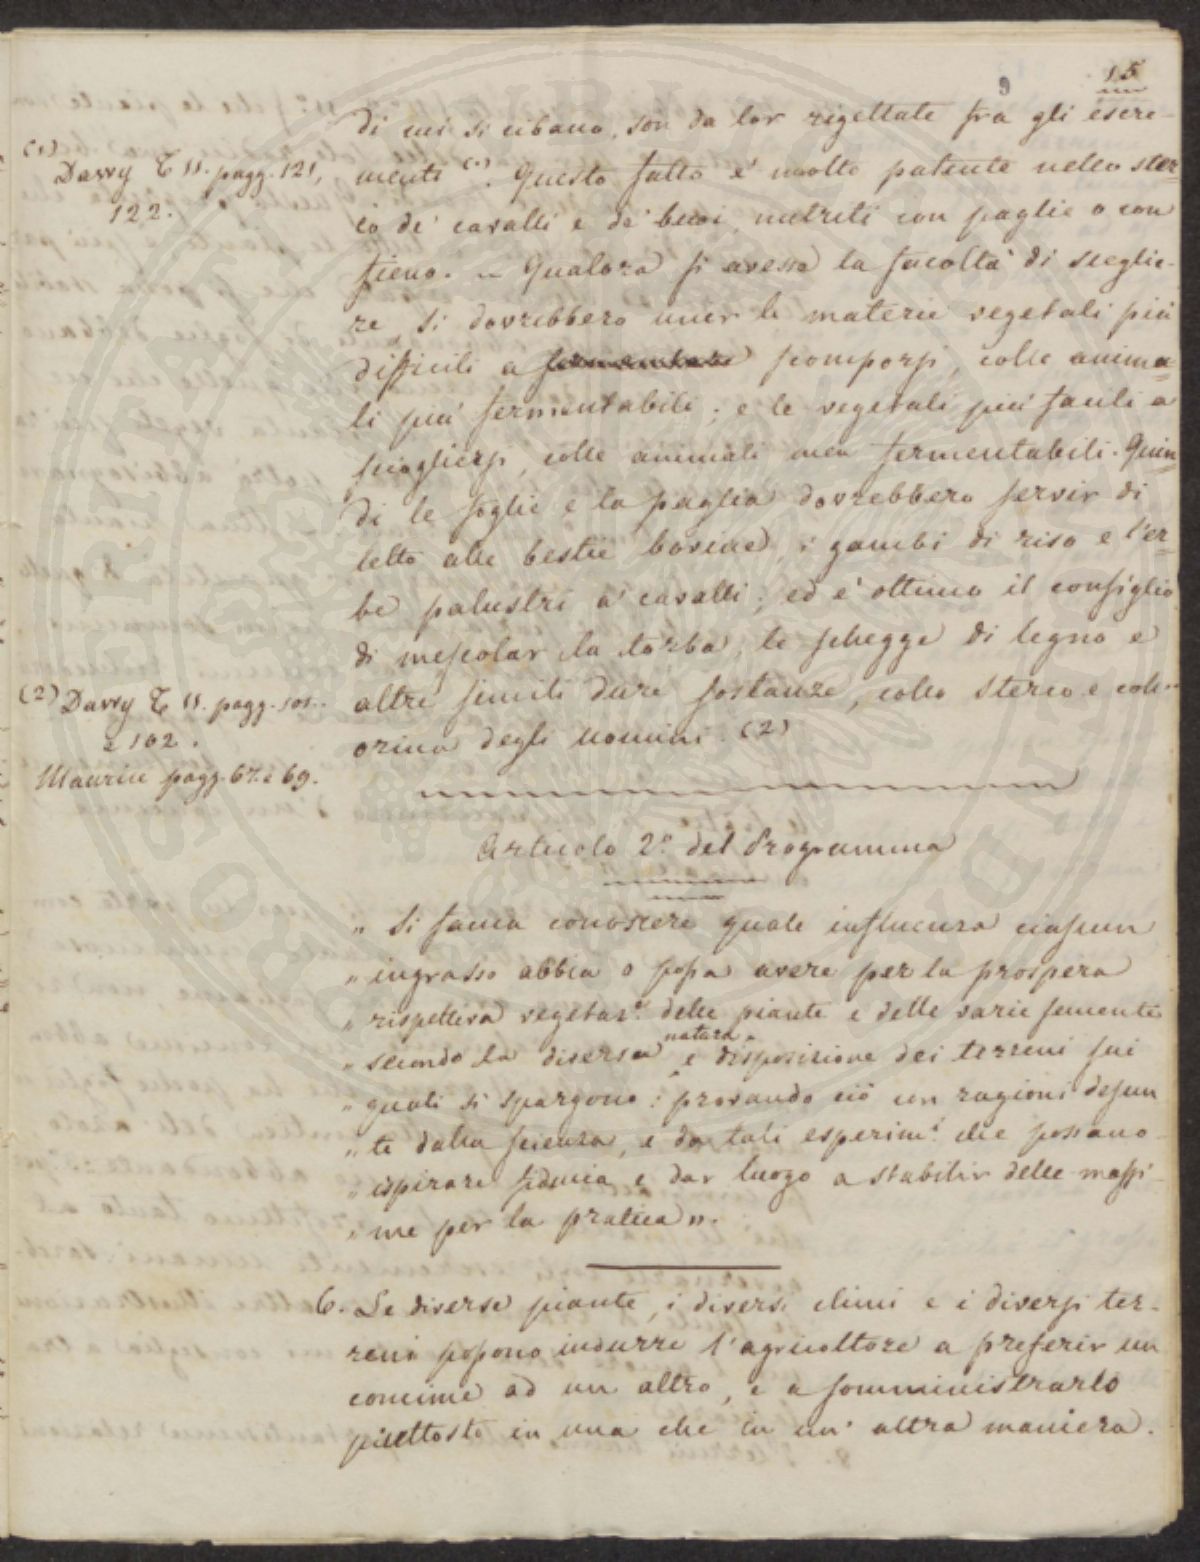 15
9
di cui si cibano, son da lor rigettate fra gli escre-
menti (1). Questo fatto è molto patente nello ster-
(1)
Davvy T. II. pagg. 121,
122.
co de' cavalli e de' buoi, nutriti con paglie o con
fieno. — Qualora si avesse la facoltà di sceglie-
re, si dovrebbero unir le materie vegetali più
difficili a fermentare scomporsi, colle anima-
li più fermentabili; e le vegetali più facili a
sciogliersi, colle animali men fermentabili. Quin-
di le foglie e la paglia dovrebbero servir di
letto alle bestie bovine, i gambi di riso e l'er-
be palustri a' cavalli; ed è ottimo il consiglio
di mescolar la torba, le schegge di legno e
altre simili dure sostanze, collo sterco e coll'
orina degli uomini. (2)
(2) Davvy T. II. pagg. 101.
e 102.
Maurice pagg. 67. e 69.
Articolo 2.o del Programma
" Si faccia conoscere quale influenza ciascun
" ingrasso abbia o possa avere per la prospera
" rispettiva vegetaz.e delle piante e delle varie semente
" secondo la diversa natura e disposizione dei terreni sui
" quali si spargono: provando ciò con ragioni desun
" te dalla scienza, e da tali esperim.i che possano
" ispirare fiducia e dar luogo a stabilir delle massi
" me per la pratica ".
6. Le diverse piante, i diversi climi e i diversi ter-
reni possono indurre l'agricoltore a preferir un
concime ad un altro, e a somministrarlo
piuttosto in una che in un' altra maniera.